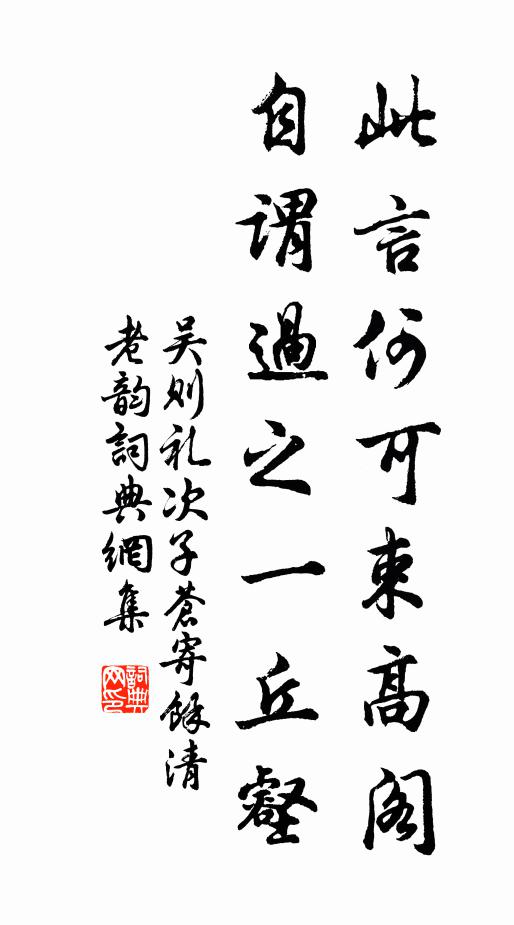 此言何可束高阁
自谓過之一丘壑
吴则礼次子蒼寄馀清
老韵詞典網集
詞典网印